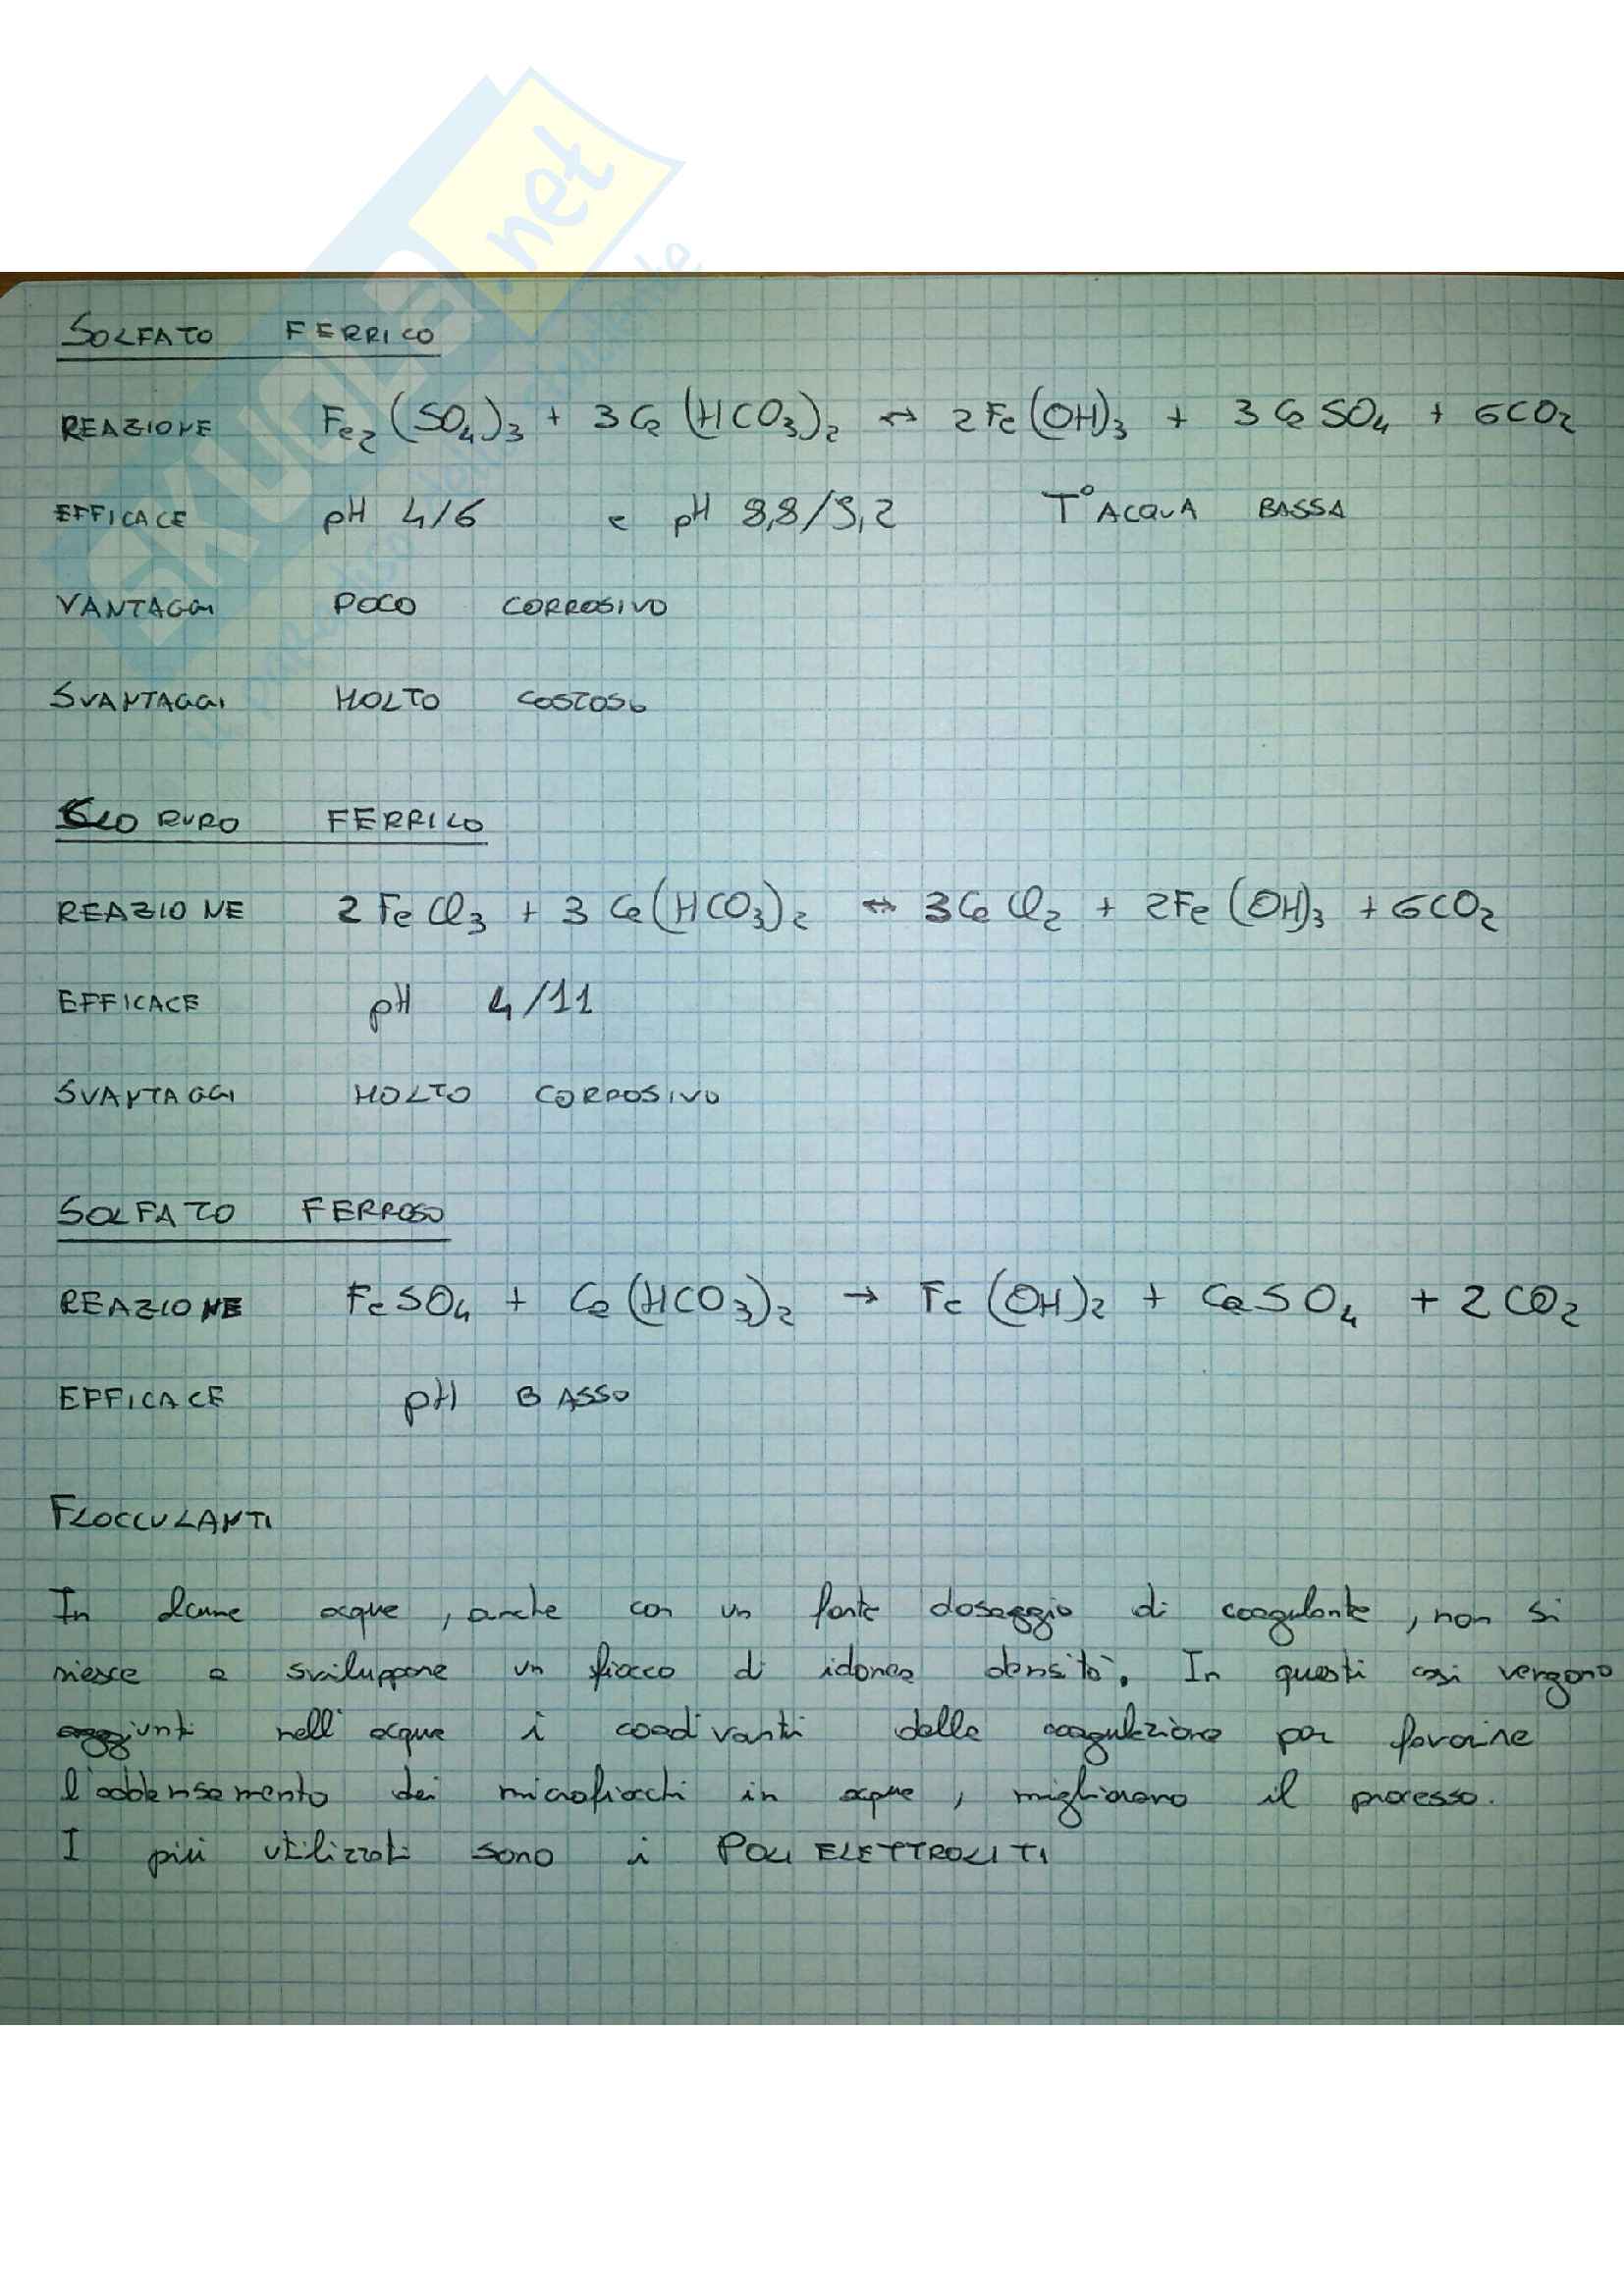 SKUOLA.net
il paradiso dello studente
SOLFATO FERRICO
REAZIONE Fe₂(SO₄)₃ + 3Ca(HCO₃)₂ ↔ 2Fe(OH)₃ + 3CaSO₄ + 6CO₂
EFFICACE pH 4/6 e pH 8,8/9,2 T° ACQUA BASSA
VANTAGGI POCO CORROSIVO
SVANTAGGI MOLTO COSTOSO
CLORURO FERRICO
REAZIONE 2FeCl₃ + 3Ca(HCO₃)₂ ↔ 3CaCl₂ + 2Fe(OH)₃ + 6CO₂
EFFICACE pH 4/11
SVANTAGGI MOLTO CORROSIVO
SOLFATO FERROSO
REAZIONE FeSO₄ + Ca(HCO₃)₂ → Fe(OH)₂ + CaSO₄ + 2CO₂
EFFICACE pH BASSO
FLOCCULANTI
In alcune acque, anche con un forte dosaggio di coagulante, non si
riesce a sviluppare un fiocco di idonea densità. In questi casi vengono
aggiunti nell'acqua i coadiuvanti della coagulazione per favorire
l'addensamento dei microfiocchi in acqua, migliorano il processo.
I più utilizzati sono i POLIELETTROLITI